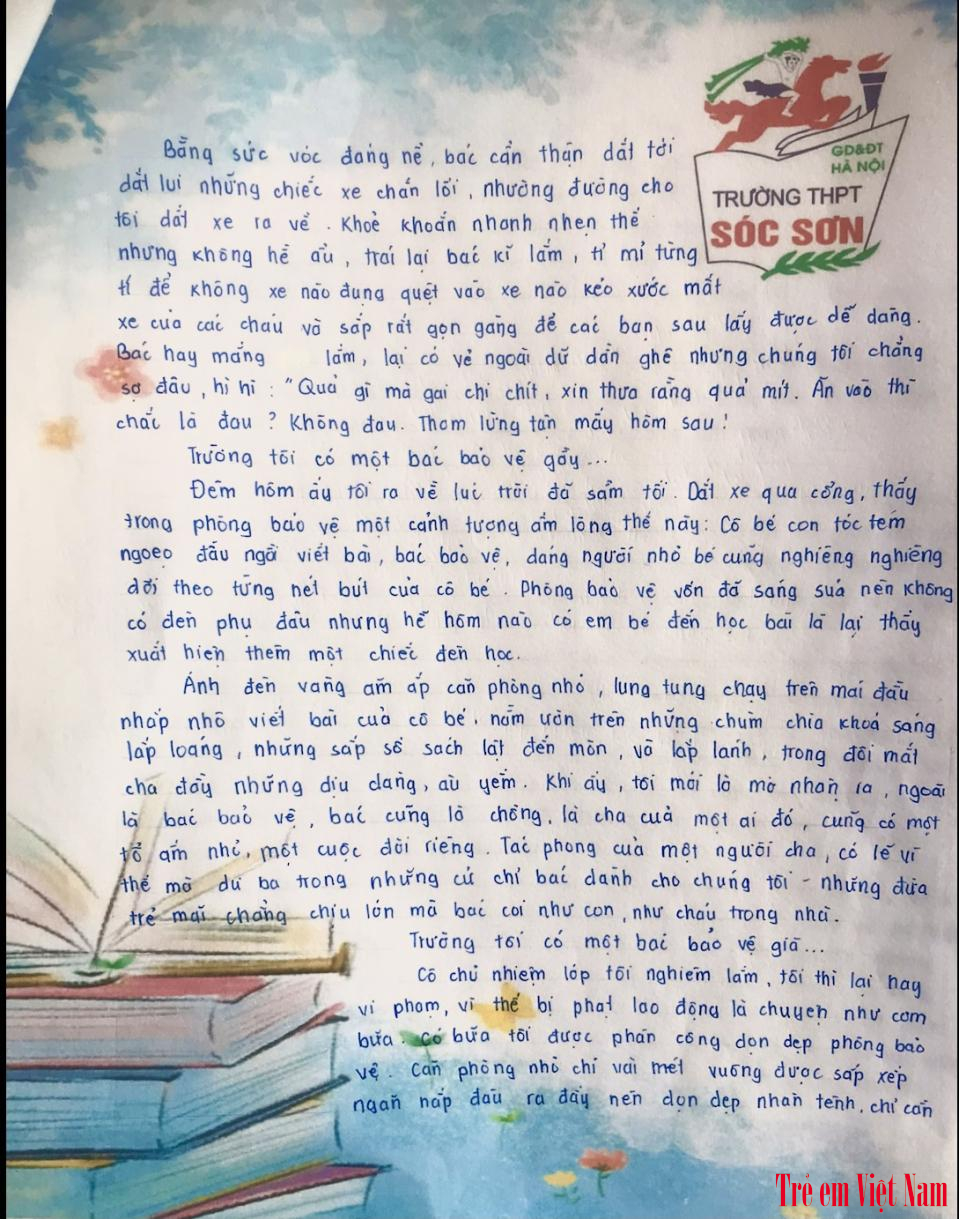 GD&ĐT
HÀ NỘI
TRƯỜNG THPT
SÓC SƠN
Bằng sức vóc đáng nể, bác cẩn thận dắt tới
dắt lui những chiếc xe chắn lối, nhường đường cho
tôi dắt xe ra về. Khoẻ khoắn nhanh nhẹn thế
nhưng không hề ẩu, trái lại bác kĩ lắm, tỉ mỉ từng
tí để không xe nào đụng quệt vào xe nào kẻo xước mất
xe của các cháu và sắp rất gọn gàng để các bạn sau lấy được dễ dàng.
Bác hay mắng lắm, lại có vẻ ngoài dữ dằn ghê nhưng chúng tôi chẳng
sợ đâu, hì hì: "Quả gì mà gai chi chít, xin thưa rằng quả mít. Ăn vào thì
chắc là đau? Không đau. Thơm lừng tận mấy hôm sau!
Trường tôi có một bác bảo vệ gầy...
Đêm hôm ấy tôi ra về lúc trời đã sẩm tối. Dắt xe qua cổng, thấy
trong phòng bảo vệ một cảnh tượng ấm lòng thế này: Cô bé con tóc tém
ngoẹo đầu ngồi viết bài, bác bảo vệ, dáng người nhỏ bé cũng nghiêng nghiêng
dõi theo từng nét bút của cô bé. Phòng bảo vệ vốn đã sáng sủa nên không
có đèn phụ đâu nhưng hễ hôm nào có em bé đến học bài là lại thấy
xuất hiện thêm một chiếc đèn học.
Ánh đèn vàng ấm áp căn phòng nhỏ, lung tung chạy trên mái đầu
nhấp nhô viết bài của cô bé, nằm ườn trên những chùm chìa khoá sáng
lấp loáng, những sấp sổ sách lật đến mòn, và lấp lánh, trong đôi mắt
cha đầy những dịu dàng, âu yếm. Khi ấy, tôi mới lờ mờ nhận ra, ngoài
là bác bảo vệ, bác cũng là chồng, là cha của một ai đó, cũng có một
tổ ấm nhỏ, một cuộc đời riêng. Tác phong của một người cha, có lẽ vì
thế mà dư ba trong những cử chỉ bác dành cho chúng tôi - những đứa
trẻ mãi chẳng chịu lớn mà bác coi như con, như cháu trong nhà.
Trường tôi có một bác bảo vệ già...
Cô chủ nhiệm lớp tôi nghiêm lắm, tôi thì lại hay
vi phạm, vì thế bị phạt lao động là chuyện như cơm
bữa. Có bữa tôi được phân công dọn dẹp phòng bảo
vệ. Căn phòng nhỏ chỉ vài mét vuông được sắp xếp
ngăn nắp đâu ra đấy nên dọn dẹp nhàn tênh, chỉ cần
Trẻ em Việt Nam